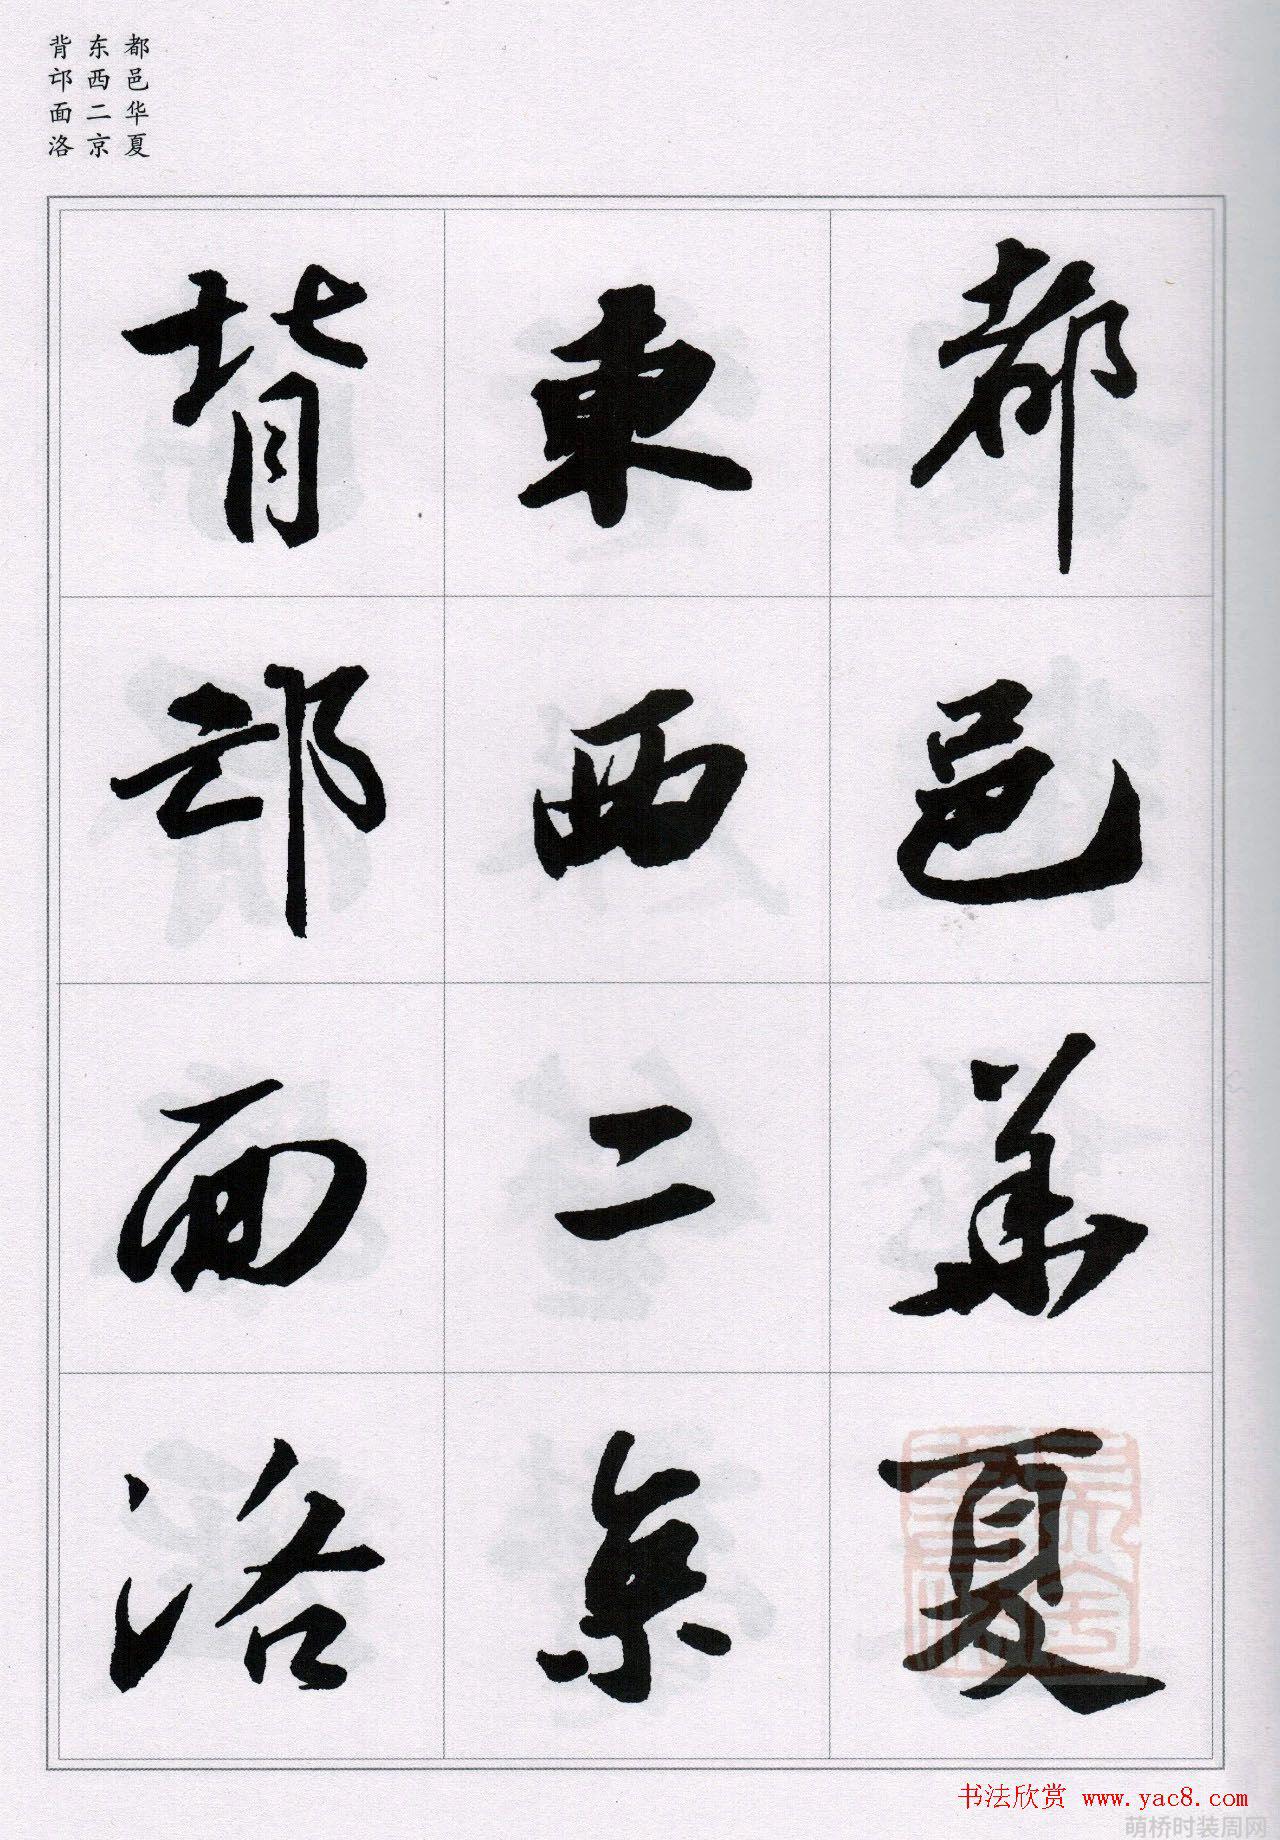 都邑华夏
东西二京
背邙面洛
都邑華夏
東西二京
背邙面洛
书法欣赏 www.yac8.com
萌桥时装周网